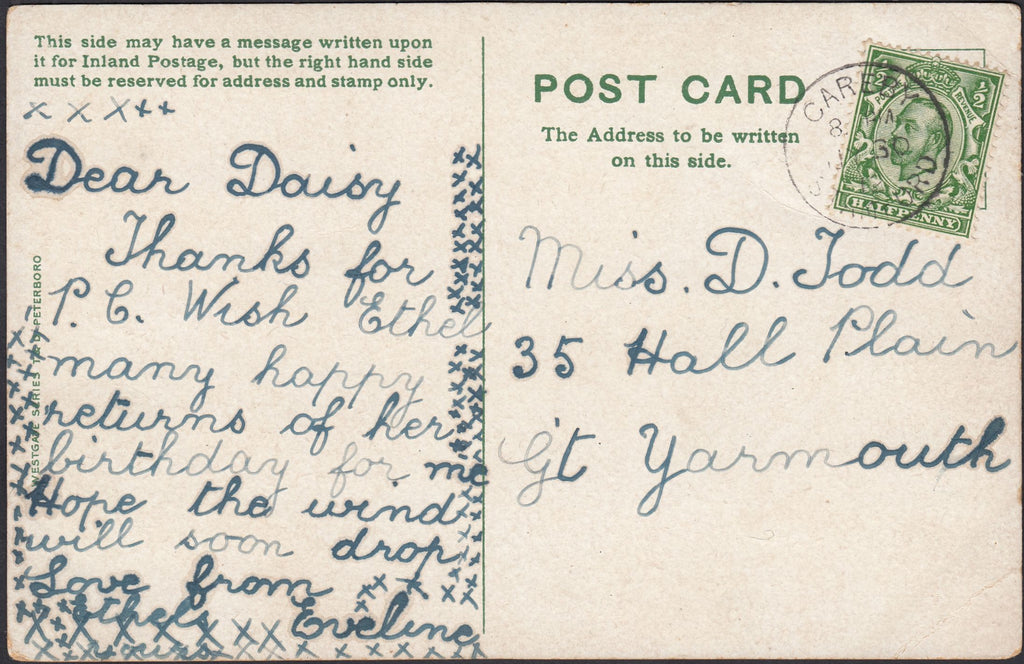 This side may have a message written upon
it for Inland Postage, but the right hand side
must be reserved for address and stamp only.
x x x x x
Dear Daisy
Thanks for
P. C. Wish Ethel
many happy
returns of her
birthday for me
Hope the wind
will soon drop
Love from
Ethels Eveline
yours
WESTGATE SERIES PETERBORO
POST CARD
The Address to be written
on this side.
CAREBY
1/2 1/2
POSTAGE REVENUE
HALFPENNY
Miss. D. Todd
35 Hall Plain
Gt Yarmouth